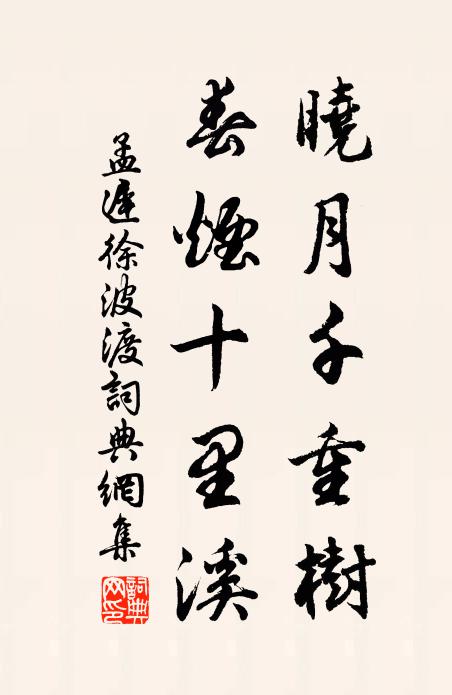 曉月千重樹
春煙十里溪
孟遲徐波渡詞典網集
詞典網印